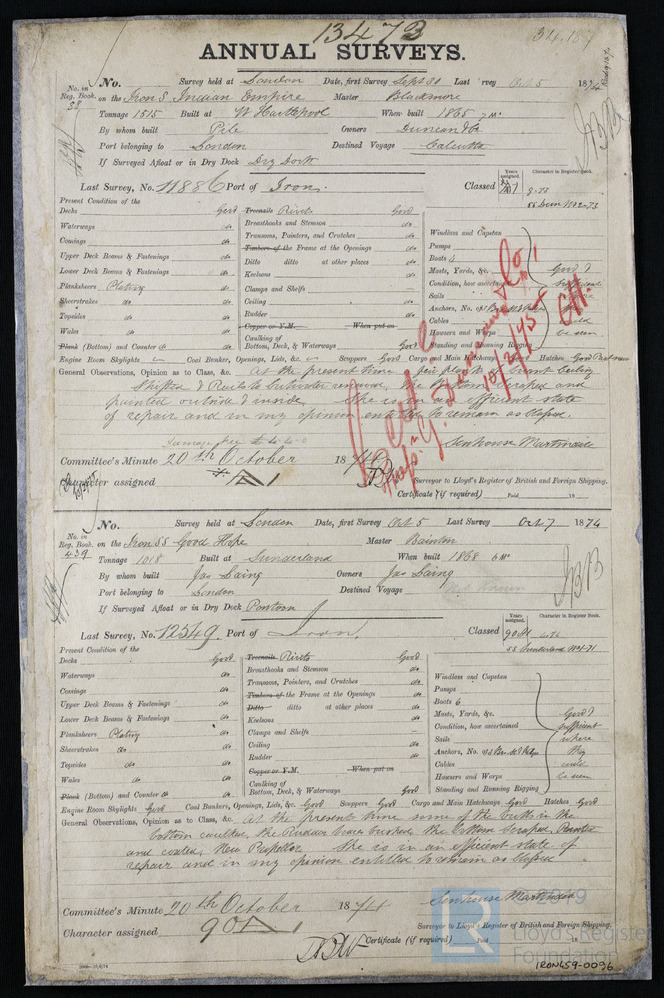 13473
ANNUAL SURVEYS.
No. in Reg. Book. 38
No. Survey held at London Date, first Survey Sept 30 Last Survey Oct 5 1874
on the Iron S Indian Empire Master Blackmore
Tonnage 1515 Built at W Hartlepool When built 1865 7 Mo
By whom built Pile Owners Duncan & Co
Port belonging to London Destined Voyage Calcutta
If Surveyed Afloat or in Dry Dock Dry Dock
Last Survey, No. 11886 Port of Iron.
Classed
Years assigned.
Character in Register Book.
Present Condition of the
Decks Good Treenails Rivets Good
Waterways do Breasthooks and Stemson do Windlass and Capstan
Comings do Transoms, Pointers, and Crutches do Pumps
Upper Deck Beams & Fastenings do Timbers of the Frame at the Openings do Boats 4
Lower Deck Beams & Fastenings do Ditto ditto at other places do Masts, Yards, &c. Good &
Planksheers Plating Keelsons do Condition, how ascertained
Sheerstrakes do do Clamps and Shelfs Sails
Topsides do do Ceiling do Anchors, No. of
Wales do do Rudder do Cables
Plank (Bottom) and Counter do Copper or Y.M. When put on Hawsers and Warps be seen
Caulking of Bottom, Deck, & Waterways Good Standing and Running Rigging
Engine Room Skylights Coal Bunker, Openings, Lids, &c. Scuppers Good Cargo and Main Hatchways Hatches Good
General Observations, Opinion as to Class, &c. At the present time a few planks Ceiling
shifted & Rivets removed, the bottom scraped and
painted outside & inside. She is in an efficient state
of repair and in my opinion entitled to remain as Classed.
Senhouse Martindale
Committee's Minute 20th October 1874
Character assigned A 1
Surveyor to Lloyd's Register of British and Foreign Shipping.
Certificate (if required) Paid 18
No. in Reg. Book. 439
No. Survey held at London Date, first Survey Oct 5 Last Survey Oct 7 1874
on the Iron SS Good Hope Master Bainton
Tonnage 1018 Built at Sunderland When built 1868 6 Mo
By whom built Jas Laing Owners Jas Laing
Port belonging to London Destined Voyage Not Known
If Surveyed Afloat or in Dry Dock Pontoon
Last Survey, No. 12549 Port of Iron.
Classed 90 A1
Years assigned.
Character in Register Book.
SS Sunderland No 1-71
Present Condition of the
Decks Good Treenails Rivets Good
Waterways do Breasthooks and Stemson do Windlass and Capstan
Comings do Transoms, Pointers, and Crutches do Pumps
Upper Deck Beams & Fastenings do Timbers of the Frame at the Openings do Boats 6
Lower Deck Beams & Fastenings do Ditto ditto at other places do Masts, Yards, &c. Good &
Planksheers Plating Keelsons do Condition, how ascertained sufficient
Sheerstrakes do do Clamps and Shelfs Sails where
Topsides do do Ceiling do Anchors, No. of they
Wales do do Rudder do Cables could
Plank (Bottom) and Counter do Copper or Y.M. When put on Hawsers and Warps be seen
Caulking of Bottom, Deck, & Waterways Good Standing and Running Rigging
Engine Room Skylights Good Coal Bunkers, Openings, Lids, &c. Good Scuppers Good Cargo and Main Hatchways Good Hatches Good
General Observations, Opinion as to Class, &c. At the present time some of the butts in the
bottom caulked, the Rudder braces bushed, the bottom scraped, Painted
and coated, New Propellor She is in an efficient state of
repair and in my opinion entitled to remain as Classed
Senhouse Martindale
Committee's Minute 20th October 1874
Character assigned 90 A 1
Surveyor to Lloyd's Register of British and Foreign Shipping.
Certificate (if required) Paid 18
Lloyd's Register
Foundation
IRON459-0096